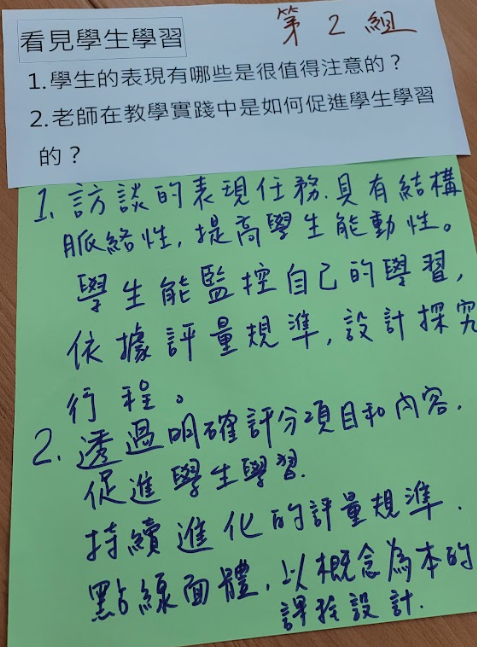 看見學生學習
第2組
1.學生的表現有哪些是很值得注意的？
2.老師在教學實踐中是如何促進學生學習
的？
1. 訪談的表現任務.具有結構
脈絡性,提高學生能動性。
學生能監控自己的學習,
依據評量規準,設計探究
行程。
2. 透過明確評分項目和內容.
促進學生學習.
持續進化的評量規準.
點線面體,以概念為本的
課程設計.